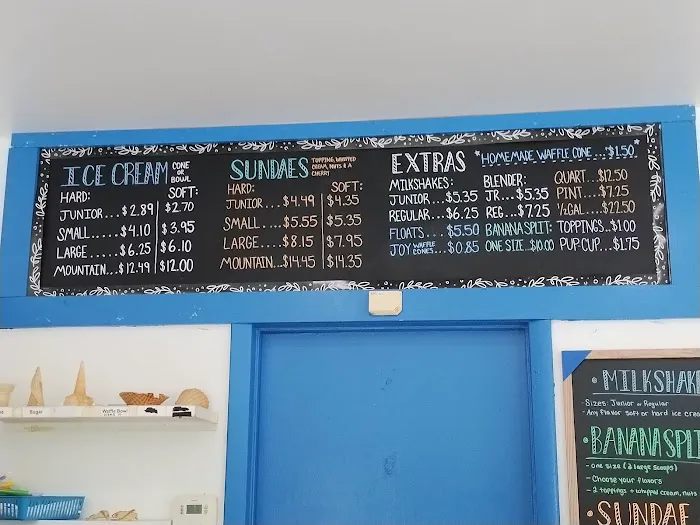 ICE CREAM CONE OR BOWL
HARD: SOFT:
JUNIOR...$2.89 $2.70
SMALL....$4.10 $3.95
LARGE.....$6.25 $6.10
MOUNTAIN...$12.49 $12.00
SUNDAES TOPPING, WHIPPED CREAM, NUTS & A CHERRY
HARD: SOFT:
JUNIOR...$4.49 $4.35
SMALL....$5.55 $5.35
LARGE....$8.15 $7.95
MOUNTAIN...$14.45 $14.35
EXTRAS *HOMEMADE WAFFLE CONE...$1.50*
MILKSHAKES:
JUNIOR...$5.35
REGULAR...$6.25
FLOATS...$5.50
JOY WAFFLE CONES...$0.85
BLENDER:
JR...$5.35
REG...$7.25
BANANA SPLIT:
ONE SIZE...$10.00
QUART...$12.50
PINT...$7.25
½ GAL...$22.50
TOPPINGS..$1.00
PUP CUP...$1.75
Sugar
Waffle Bowl
• MILKSHAKE
- Sizes: Junior or Regular
- Any flavor soft or hard ice crea
• BANANA SPLI
- one size (3 large scoops)
- Choose your flavors
- 2 toppings + whipped cream, nuts
• SUNDAE